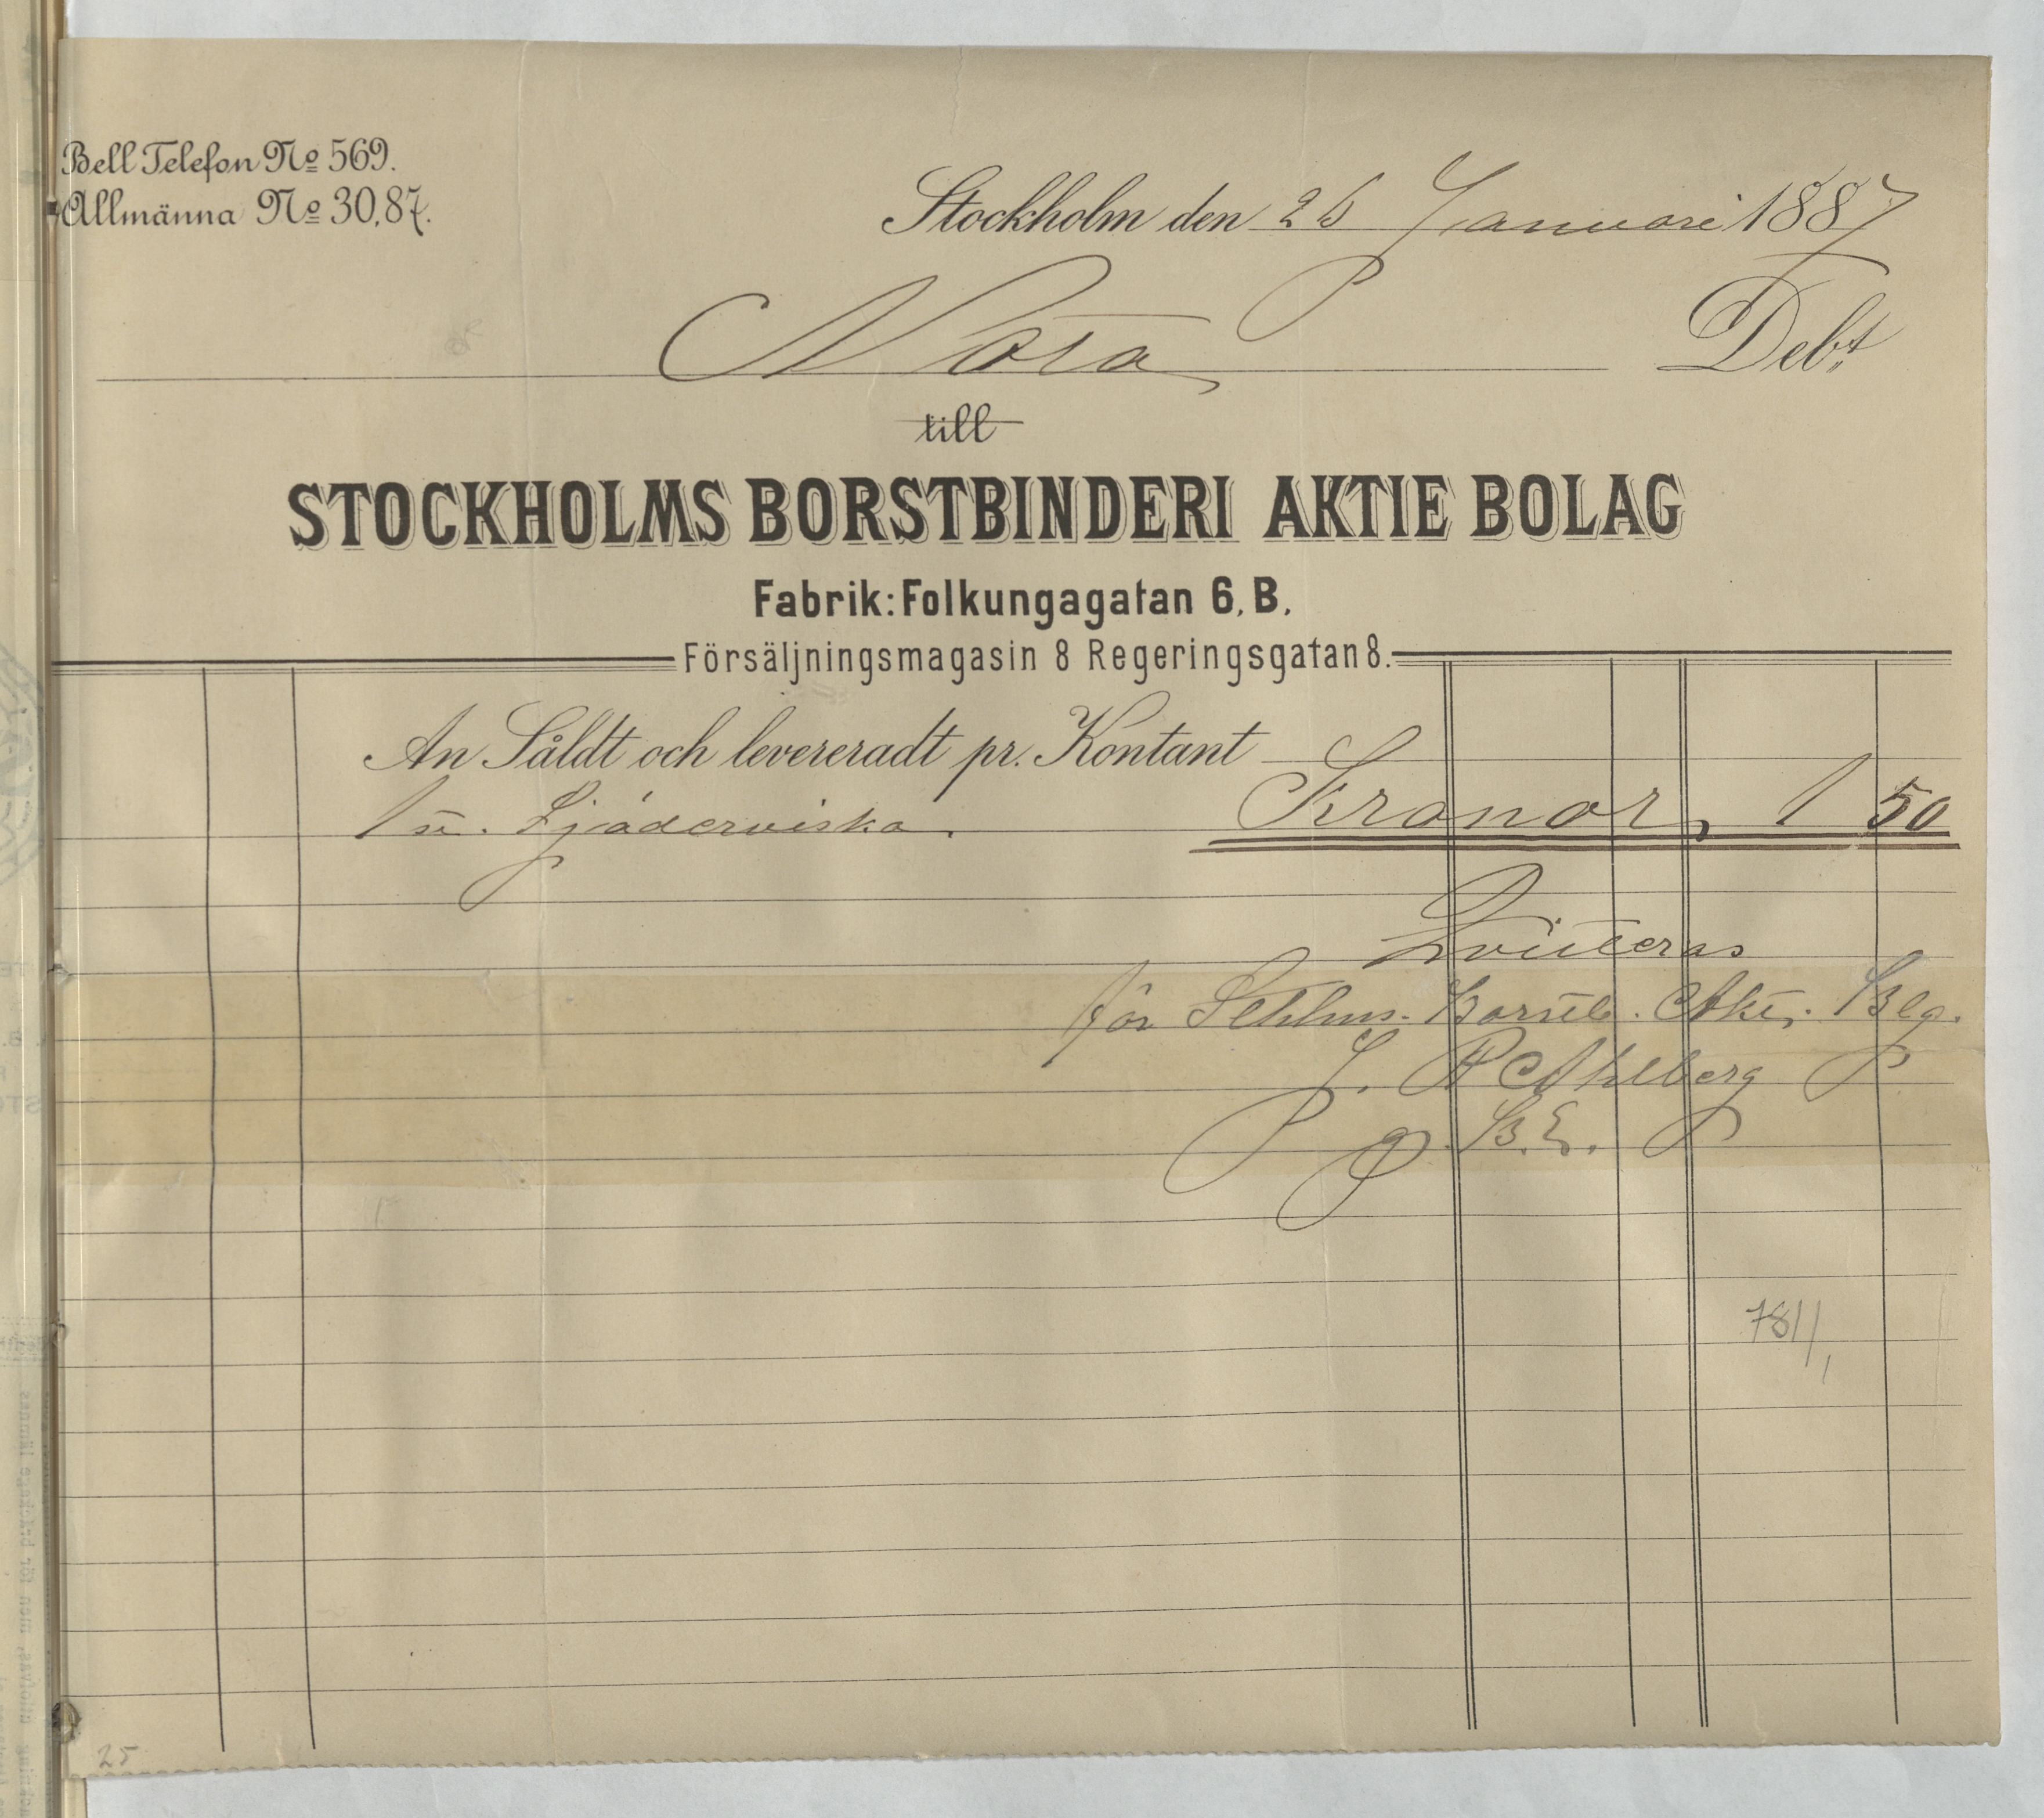 Bell Telefon No 569.
Allmänna No 30,87.
Stockholm den 26 Januari 1887
Nota Debt
till
STOCKHOLMS BORSTBINDERI AKTIE BOLAG
Fabrik: Folkungagatan 6, B,
Försäljningsmagasin 8 Regeringsgatan 8.
An Såldt och levereradt pr. Kontant
1 st. Fjäderviska. Kronor 1 50
Qvitteras
för Sthlms. Borstb. Akt. Blg.
J. P. Ahlberg
B. E.
781/1
25